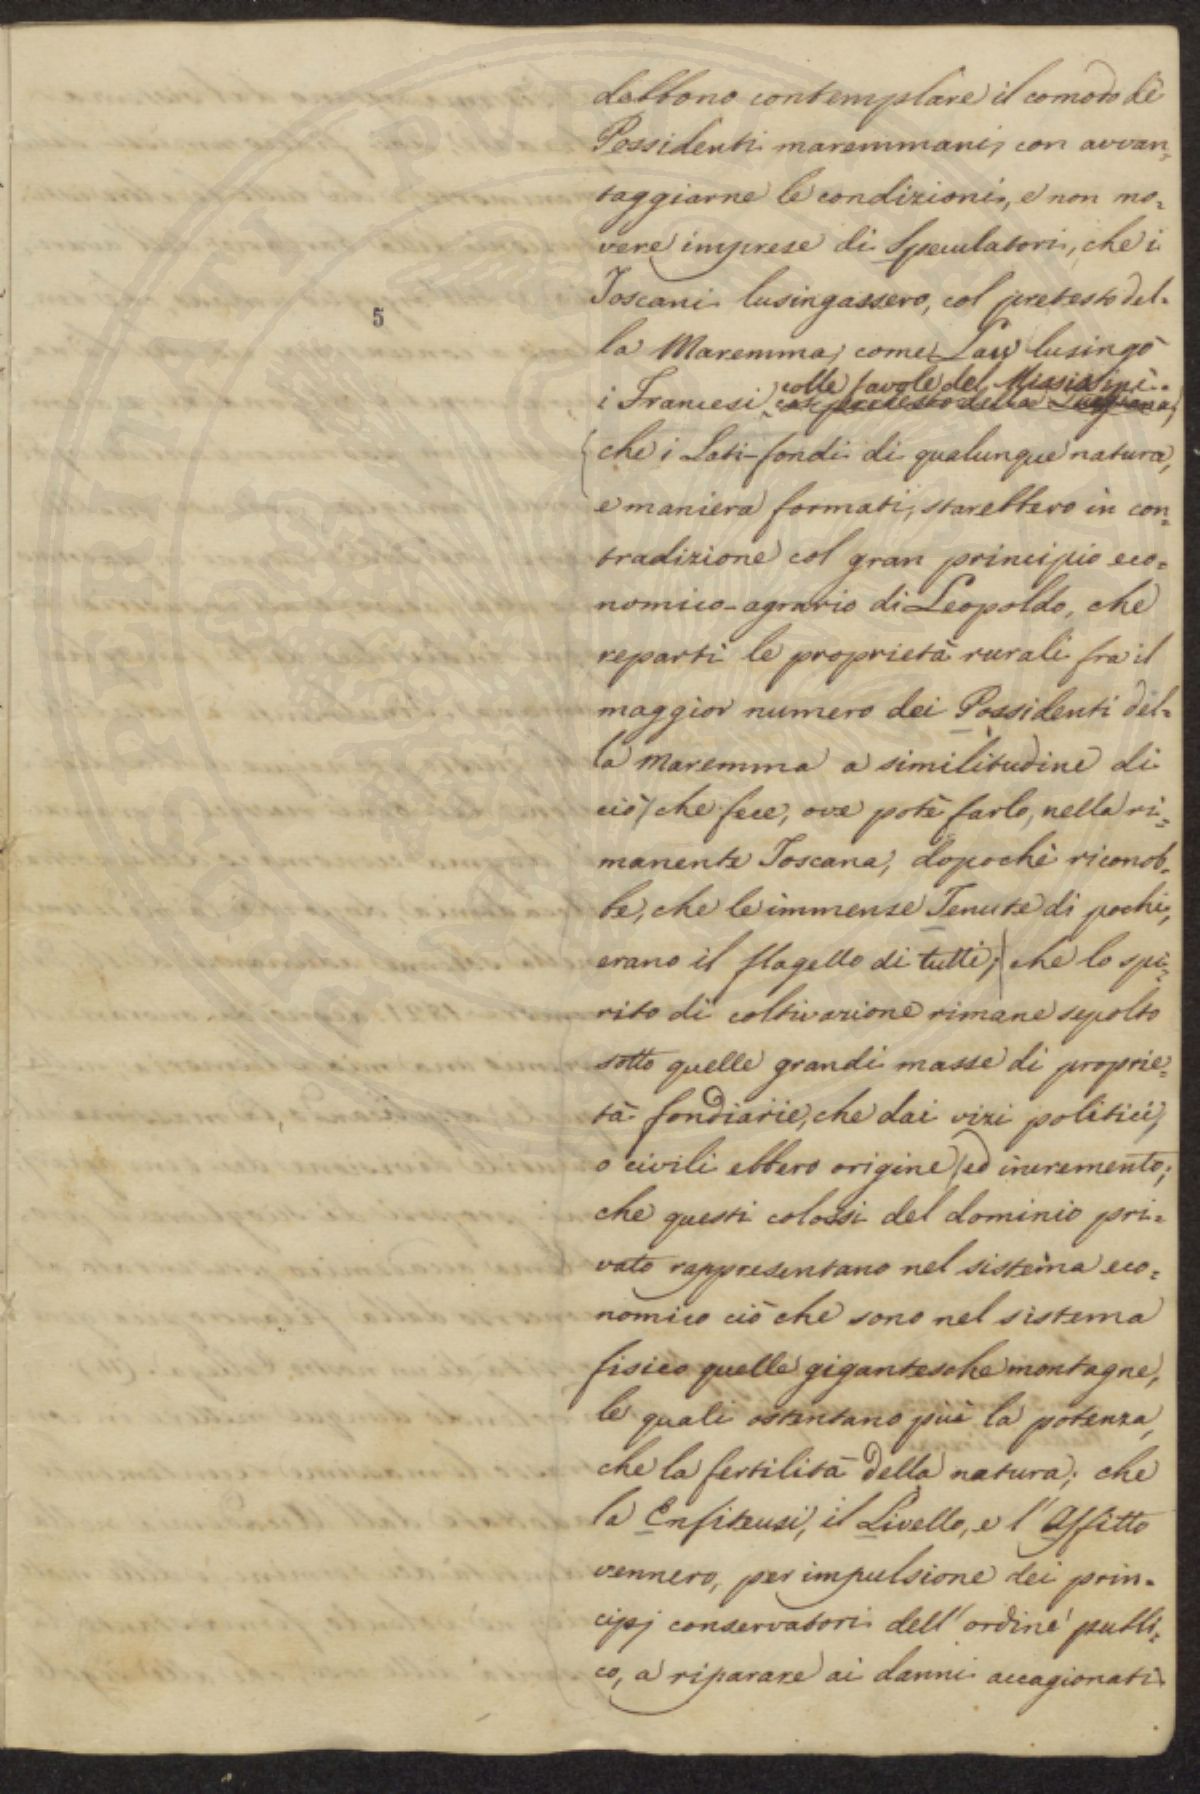 debbono contemplare il comodo de'
Possidenti maremmani, con avvan=
taggiarne le condizioni, e non mo=
vere imprese di Speculatori, che i
Toscani lusingassero, col pretesto del=
5
la Maremma, come Law lusingò
colle favole del Missisipì
i Francesi col pretesto della Luigiana,
che i Lati-fondi di qualunque natura,
e maniera formati, starebbero in con=
tradizione col gran principio eco=
nomico-agrario di Leopoldo, che
repartì le proprietà rurali fra il
maggior numero dei Possidenti del=
la maremma a similitudine di
ciò che fece, ove potè farlo, nella ri=
manente Toscana, dopochè riconob=
be, che le immense Tenute di pochi,
erano il flagello di tutti; che lo spi=
rito di coltivazione rimane sepolto
sotto quelle grandi masse di proprie=
tà fondiarie, che dai vizi politici,
o civili ebbero origine ed incremento;
che questi colossi del dominio pri=
vato rappresentano nel sistema eco=
nomico ciò che sono nel sistema
fisico quelle gigantesche montagne,
le quali ostentano più la potenza,
che la fertilità della natura; che
la Enfiteusi, il Livello, e l'Affitto
vennero, per impulsione dei prin=
cipj conservatori dell'ordine pubbli=
co, a riparare ai danni accagionati